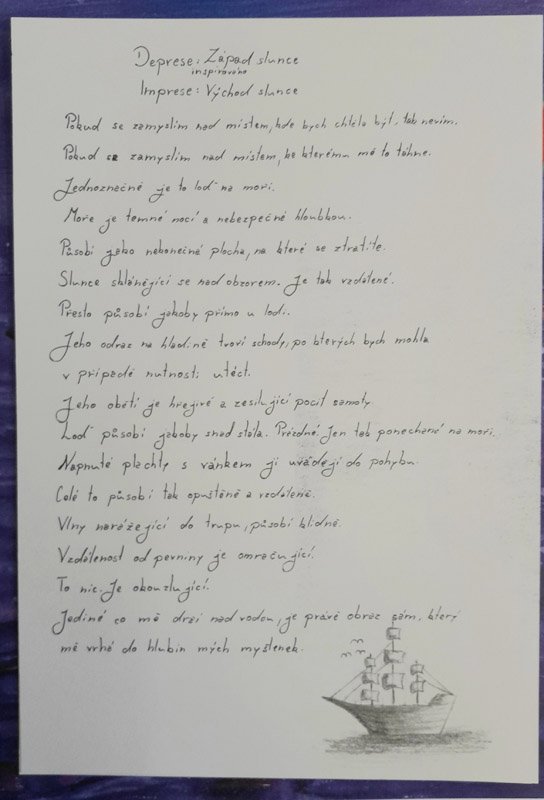 Deprese: Západ slunce
inspirováno
Imprese: Východ slunce
Pokud se zamyslím nad místem, kde bych chtěla být, tak nevím.
Pokud se zamyslím nad místem, ke kterému mě to táhne.
Jednoznačně je to loď na moři.
Moře je temné nocí a nebezpečné hloubkou.
Působí jako nekonečná plocha, na které se ztratíte.
Slunce sklánějící se nad obzorem. Je tak vzdálené.
Přesto působí jakoby přímo u lodi.
Jeho odraz na hladině tvoří schody, po kterých bych mohla
v případě nutnosti utéct.
Jeho obětí je hřejivé a zesilující pocit samoty.
Loď působí jakoby snad stála. Prázdné. Jen tak ponechané na moři.
Napnuté plachty s vánkem ji uvádějí do pohybu.
Celé to působí tak opuštěně a vzdáleně.
Vlny narážející do trupu, působí klidně.
Vzdálenost od pevniny je omračující.
To nic. Je okouzlující.
Jediné co mě drží nad vodou, je právě obraz sám, který
mě vrhá do hlubin mých myšlenek.